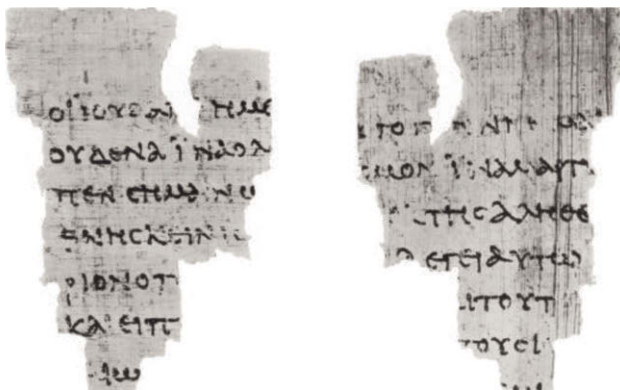 ΟΙΙΟΥΔΑΙ ΗΜΕ
ΟΥΔΕΝΑΪΝΑΟΛ
ΠΕΝCΗΜΑΙΝΩ
ΘΝΗCΚΕΙΝΙC
ΡΙΟΝΟΠ
ΚΑΙΕΙΠ
ΑΙΩ
CΜΟΝΪΝΑΜΑΡΤΥ
ΤΗCΑΛΗΘΕ
ΛΕΓΕΙΑΥΤΩ
ΑΙΤΟΥΤ
ΤΟΥCΙ